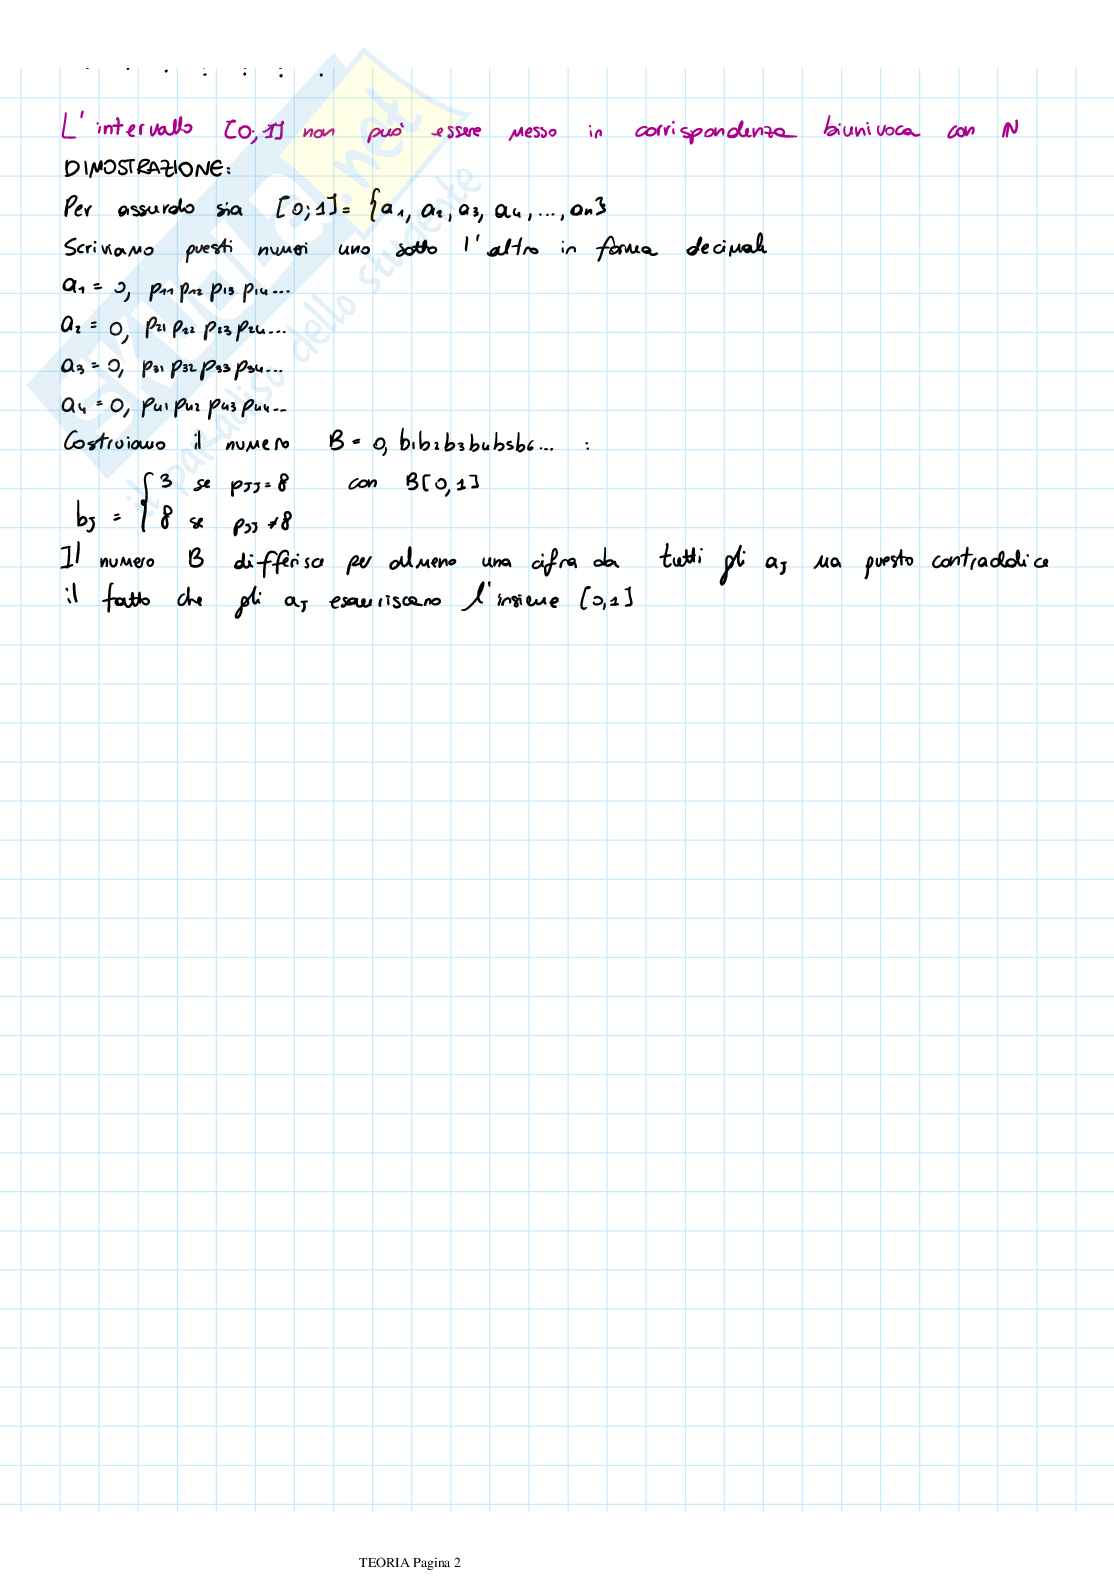 L'intervallo [0;1] non può essere messo in corrispondenza biunivoca con N
DIMOSTRAZIONE:
Per assurdo sia [0;1] = {a₁, a₂, a₃, a₄, ..., an}
Scriviamo questi numeri uno sotto l'altro in forma decimale
a₁ = 0, p₁₁ p₁₂ p₁₃ p₁₄...
a₂ = 0, p₂₁ p₂₂ p₂₃ p₂₄...
a₃ = 0, p₃₁ p₃₂ p₃₃ p₃₄...
a₄ = 0, p₄₁ p₄₂ p₄₃ p₄₄...
Costruiamo il numero B = 0, b₁b₂b₃b₄b₅b₆... :
bJ = { 3 se pJJ = 8 con B[0,1]
8 se pJJ ≠ 8
Il numero B differisce per almeno una cifra da tutti gli aJ ma questo contraddice
il fatto che gli aJ esauriscano l'insieme [0,1]
SKUOLA.net
il paradiso dello studente
TEORIA Pagina 2